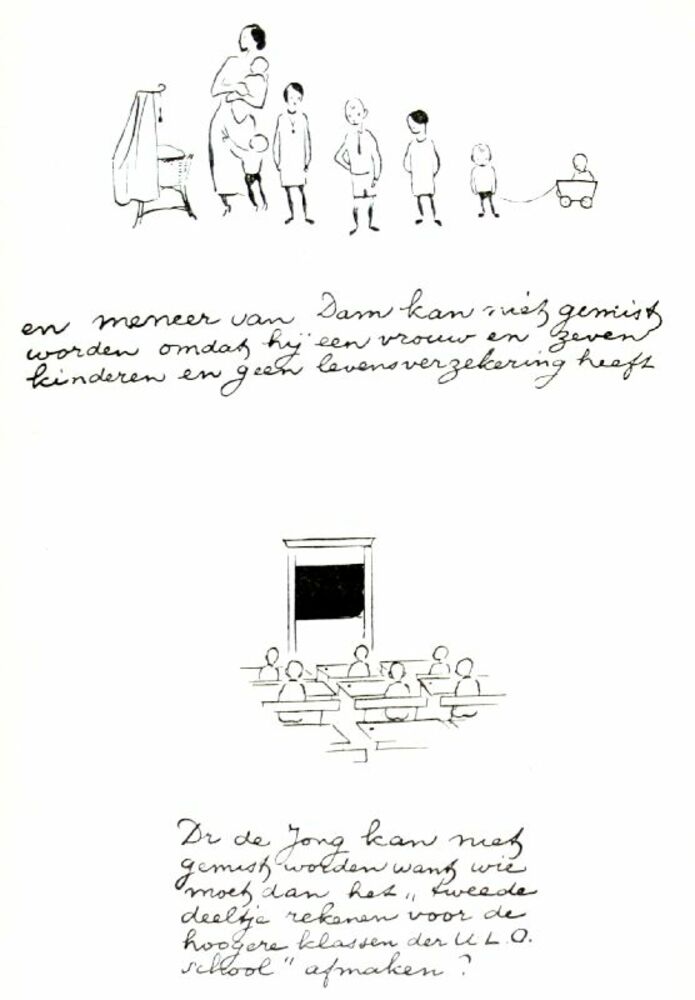 en meneer van Dam kan niet gemist
worden omdat hij een vrouw en zeven
kinderen en geen levensverzekering heeft
Dr de Jong kan niet
gemist worden want wie
moet dan het „tweede
deeltje rekenen voor de
hoogere klassen der U.L.O.
school" afmaken?